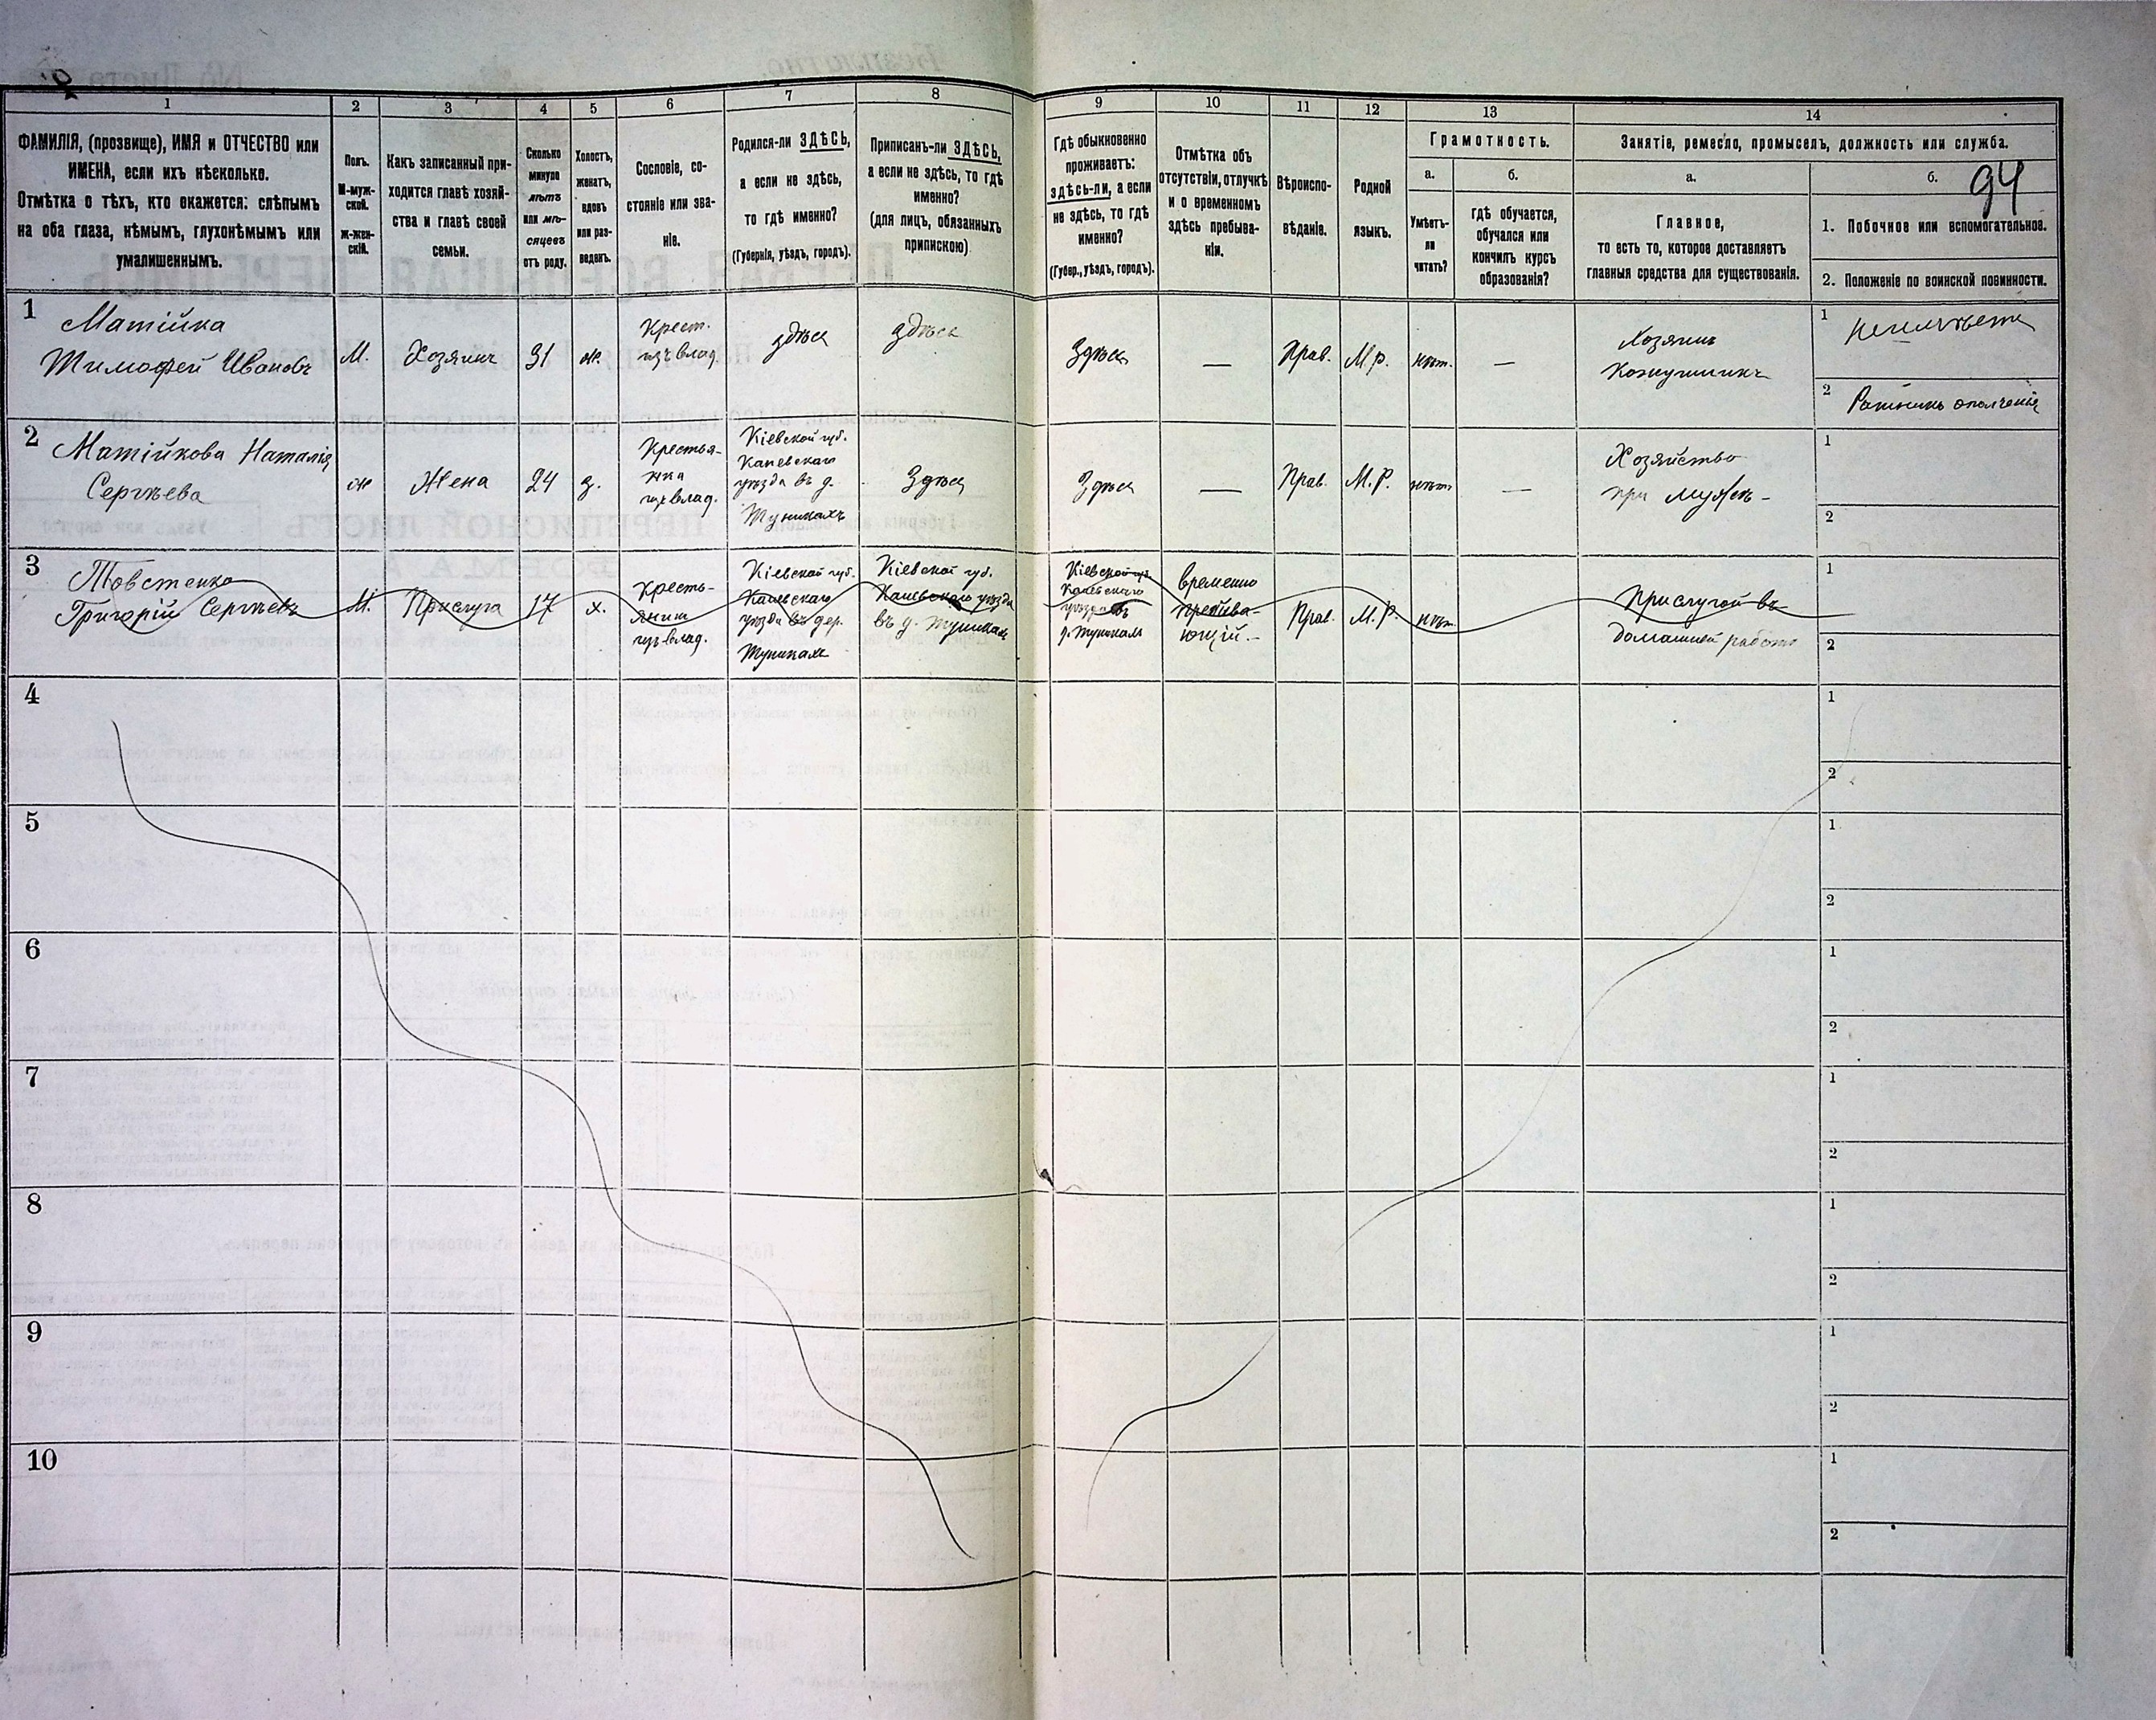 1 2 3 4 5 6 7 8 9 10 11 12 13 14
ФАМИЛІЯ, (прозвище), ИМЯ и ОТЧЕСТВО или
ИМЕНА, если ихъ нѣсколько.
Отмѣтка о тѣхъ, кто окажется: слѣпымъ
на оба глаза, нѣмымъ, глухонѣмымъ или
умалишеннымъ.
Полъ.
М-муж-
ской.
Ж-жен-
скій.
Какъ записанный при-
ходится главѣ хозяй-
ства и главѣ своей
семьи.
Сколько
минуло
лѣтъ
или мѣ-
сяцевъ
отъ роду.
Холостъ,
женатъ,
вдовъ
или раз-
веденъ.
Сословіе, со-
стояніе или зва-
ніе.
Родился-ли ЗДѢСЬ,
а если не здѣсь,
то гдѣ именно?
(Губернія, уѣздъ, городъ).
Приписанъ-ли ЗДѢСЬ,
а если не здѣсь, то гдѣ
именно?
(для лицъ, обязанныхъ
припискою)
Гдѣ обыкновенно
проживаетъ:
здѣсь-ли, а если
не здѣсь, то гдѣ
именно?
(Губер., уѣздъ, городъ).
Отмѣтка объ
отсутствіи, отлучкѣ
и о временномъ
здѣсь пребыва-
ніи.
Вѣроиспо-
вѣданіе.
Родной
языкъ.
Грамотность.
а.
Умѣетъ-
ли
читать?
б.
гдѣ обучается,
обучался или
кончилъ курсъ
образованія?
Занятіе, ремесло, промыселъ, должность или служба.
а.
Главное,
то есть то, которое доставляетъ
главныя средства для существованія.
б.
94
1. Побочное или вспомогательное.
2. Положеніе по воинской повинности.
1
Матійка
Тимофей Ивановъ
М.
Хозяинъ
31
ж.
Крест.
изъ влад.
здѣсь
здѣсь
Здѣсь
—
Прав.
М.р.
нѣт.
—
Хозяинъ
Кожушникъ
1
2 Ратникъ ополченія
2
Матійкова Наталія
Сергѣева
ж
Жена
24
з.
Крестья-
нка
изъ влад.
Кіевской губ.
Каневскаго
уѣзда въ д.
Тупикахъ
Здѣсь
Здѣсь
—
Прав.
М.Р.
нѣт.
—
Хозяйство
при мужѣ -
1
2
3
Товстенко
Григорій Сергѣевъ
М.
Прислуга
17
х.
Кресть-
янин
изъ влад.
Кіевской губ.
Каневскаго
уѣзда въ дер.
Тупикахъ
Кіевской губ.
Каневскаго уѣзда
въ д. Тупикахъ
Кіевской губ.
Каневскаго
уѣзда въ
д. Тупикахъ
временно
пребыва-
ющій.-
Прав.
М.Р.
нѣт.
Прислугой въ
домашней работѣ
1
2
4
1
2
5
1
2
6
1
2
7
1
2
8
1
2
9
1
2
10
1
2